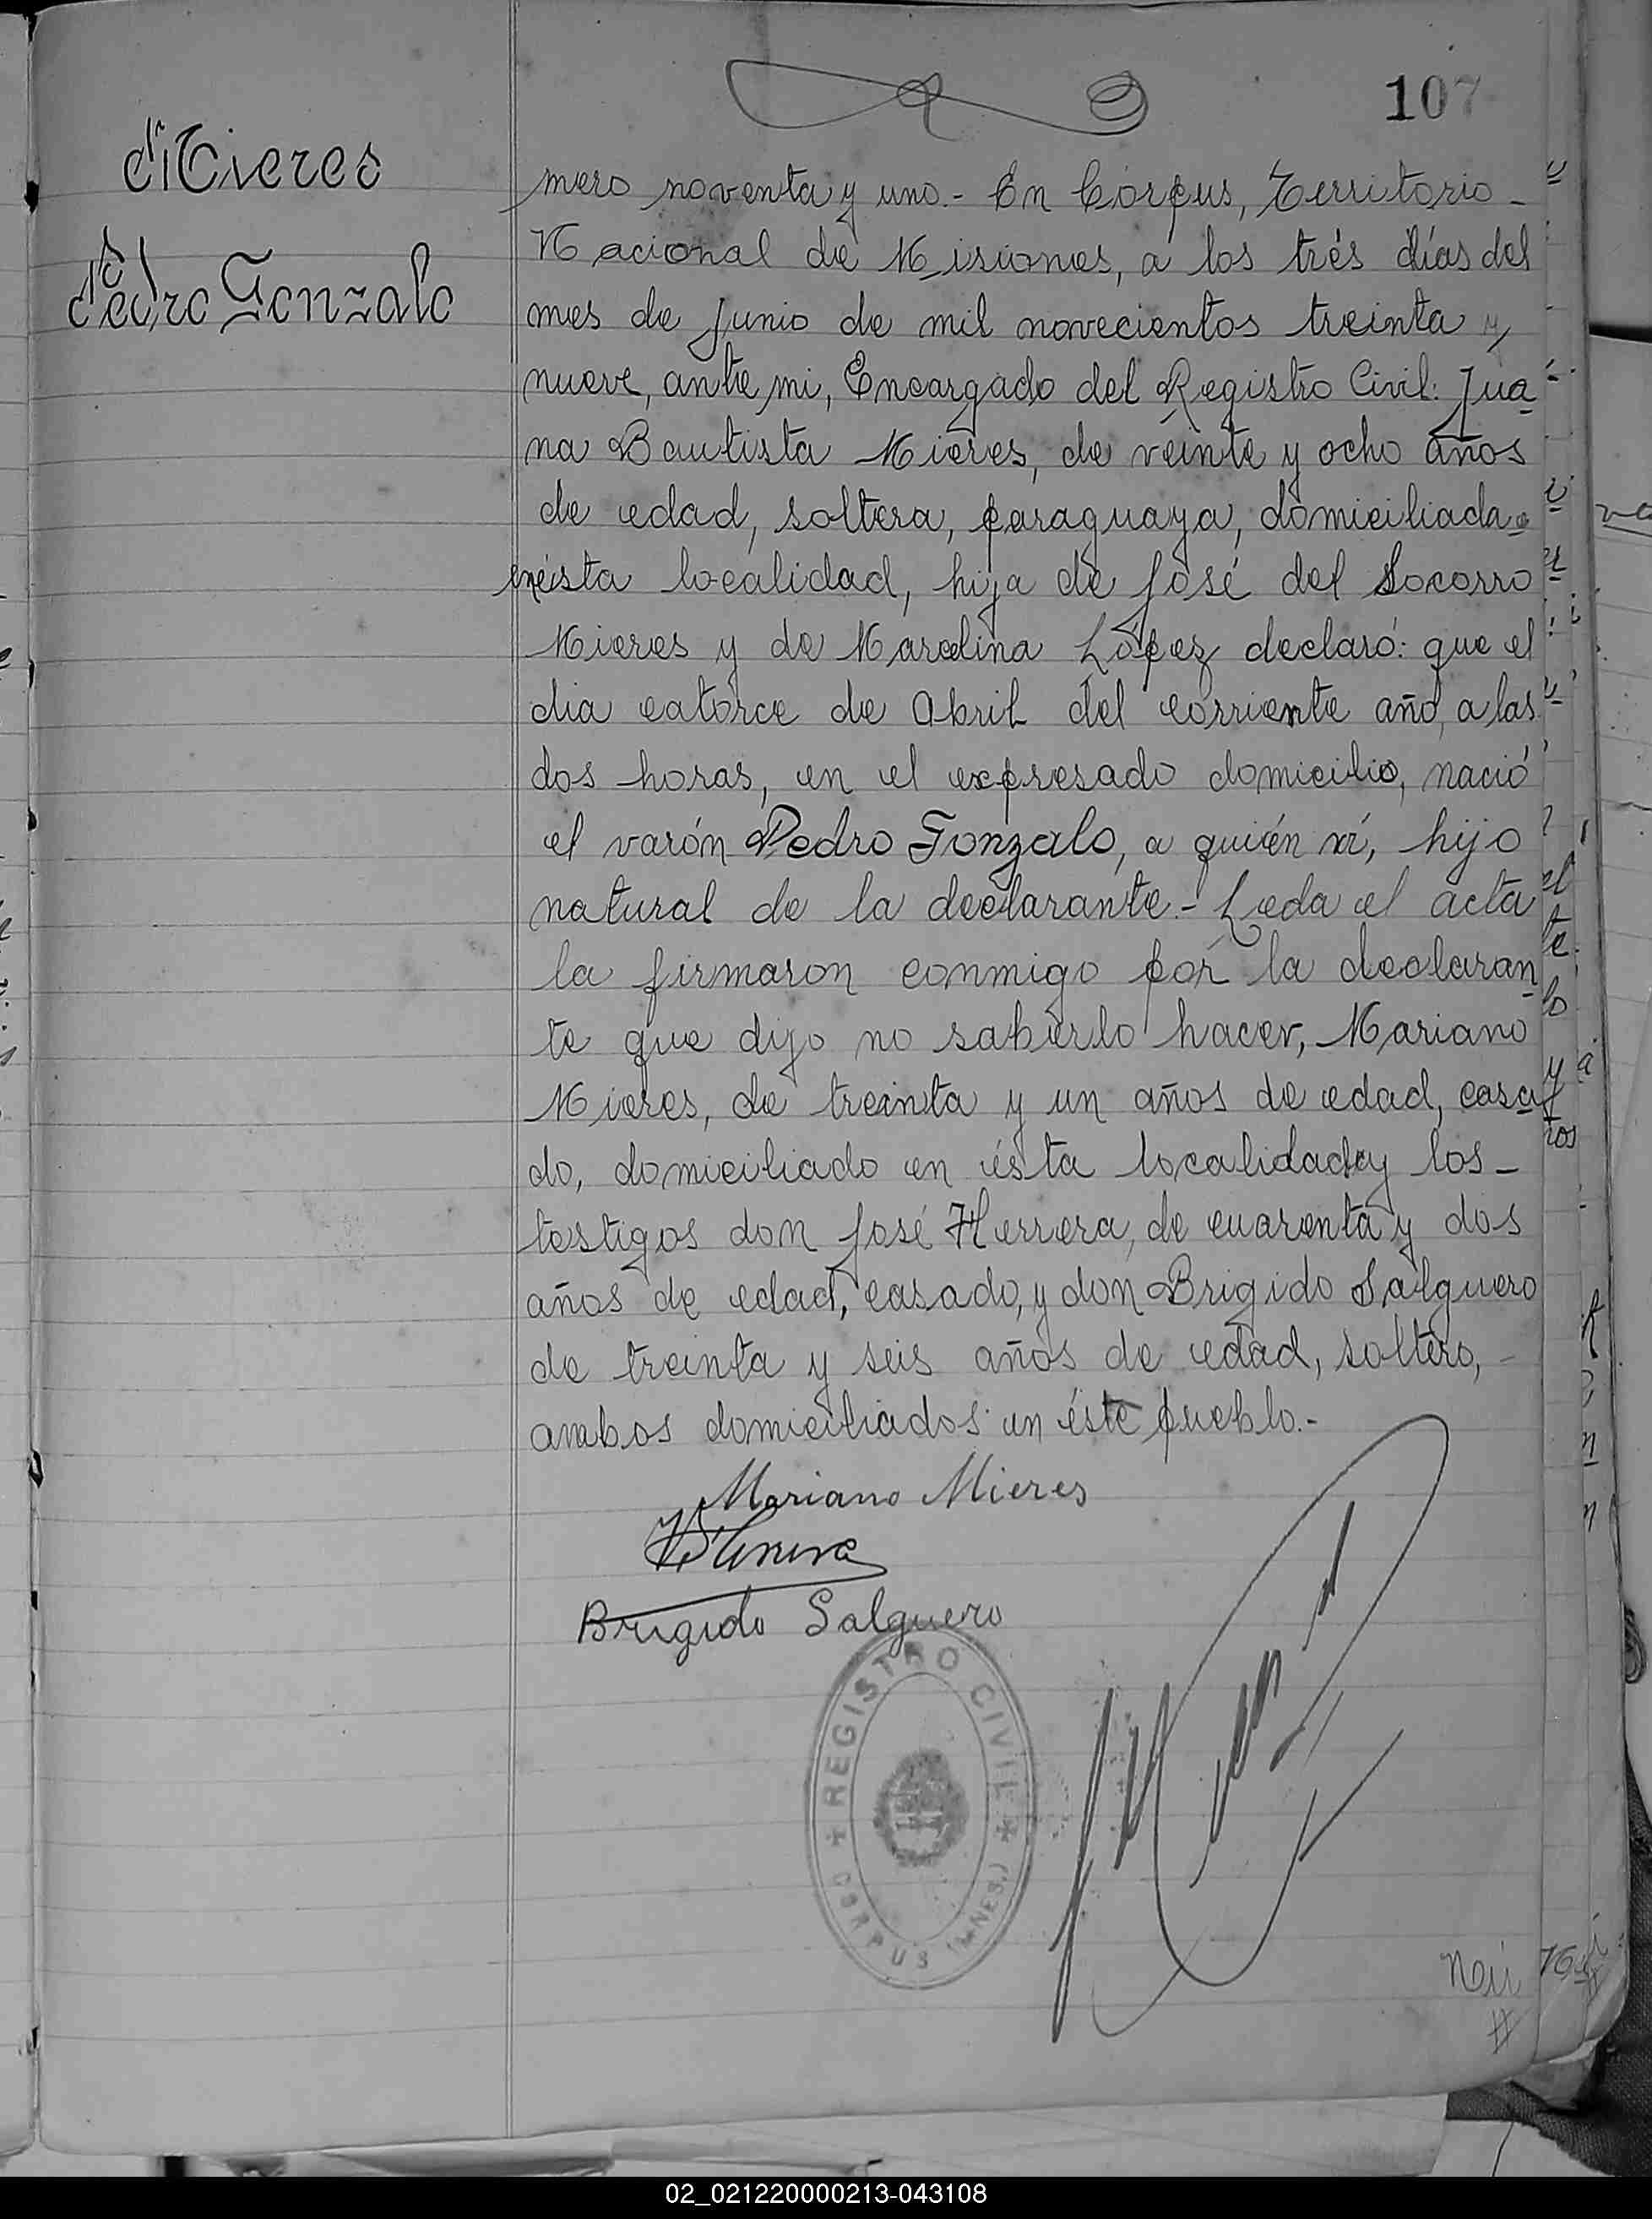 107
Mieres
Pedro Gonzalo
mero noventa y uno.- En Corpus, Territorio -
Nacional de Misiones, a los trés días del
mes de Junio de mil novecientos treinta y
nueve, ante mi, Encargado del Registro Civil: Jua-
na Bautista Mieres, de veinte y ocho años
de edad, soltera, paraguaya, domiciliada
en ésta localidad, hija de José del Socorro
Mieres y de Marcelina López declaró: que el
dia catorce de Abril del corriente año, a las
dos horas, en el expresado domicilio, nació
el varón Pedro Gonzalo, a quién vi, hijo
natural de la declarante.- Leda el acta
la firmaron conmigo por la declaran-
te que dijo no saberlo hacer, Mariano
Mieres, de treinta y un años de edad, casa-
do, domiciliado en ésta localidad y los -
testigos don José Herrera, de cuarenta y dos
años de edad, casado, y don Brigido Salguero
de treinta y seis años de edad, soltero, -
ambos domiciliados en éste pueblo.-
Mariano Mieres
Brigido Salguero
REGISTRO CIVIL
CORPUS (MNES.)
02_021220000213-043108